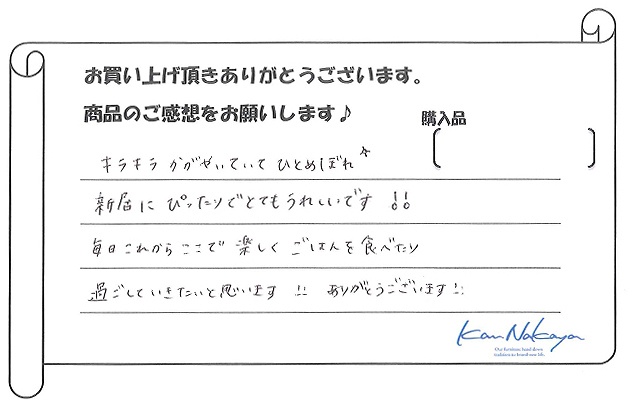 お買い上げ頂きありがとうございます。
商品のご感想をお願いします♪
購入品
キラキラ かがやいていて ひとめぼれ☆
新居に ぴったりでとてもうれしいです!!
毎日これからここで 楽しく ごはんを食べたり
過ごしていきたいと思います!! ありがとうございます!!
Kan Nakaya